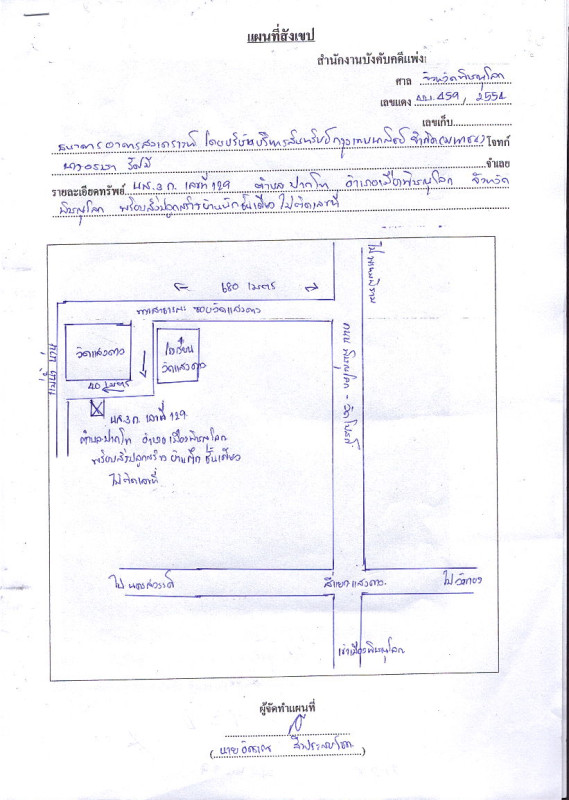 แผนที่สังเขป
สำนักงานบังคับคดีแพ่ง
ศาล จังหวัดพิษณุโลก
เลขแดง ผบ.459/2554
เลขเก็บ
ธนาคารอาคารสงเคราะห์ โดยบริษัทบริหารสินทรัพย์กรุงเทพพาณิชย์ จำกัด(มหาชน) โจทก์
จำเลย
รายละเอียดทรัพย์ นส.3 ก. เลขที่ 129 ตำบล ปากโท อำเภอเมืองพิษณุโลก จังหวัด
พิษณุโลก พร้อมสิ่งปลูกสร้างบ้านตึกชั้นเดียว ไม่ติดเลขที่
680 เมตร
ทางสาธารณะ ซอยวัดแสงดาว
แม่น้ำ น่าน
วัดแสงดาว
โรงเรียน
วัดแสงดาว
40 เมตร
นส.3ก. เลขที่ 129
ตำบลปากโท อำเภอเมืองพิษณุโลก
พร้อมสิ่งปลูกสร้าง บ้านตึก ชั้นเดียว
ไม่ติดเลขที่
ถนน พิษณุโลก -
ไป นครสวรรค์
สี่แยกแสงดาว
ไป วังทอง
เข้าเมืองพิษณุโลก
ผู้จัดทำแผนที่